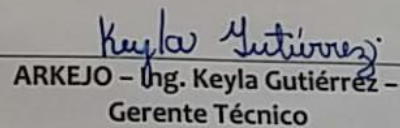 Keyla Gutiérrez
ARKEJO – Ing. Keyla Gutiérrez –
Gerente Técnico